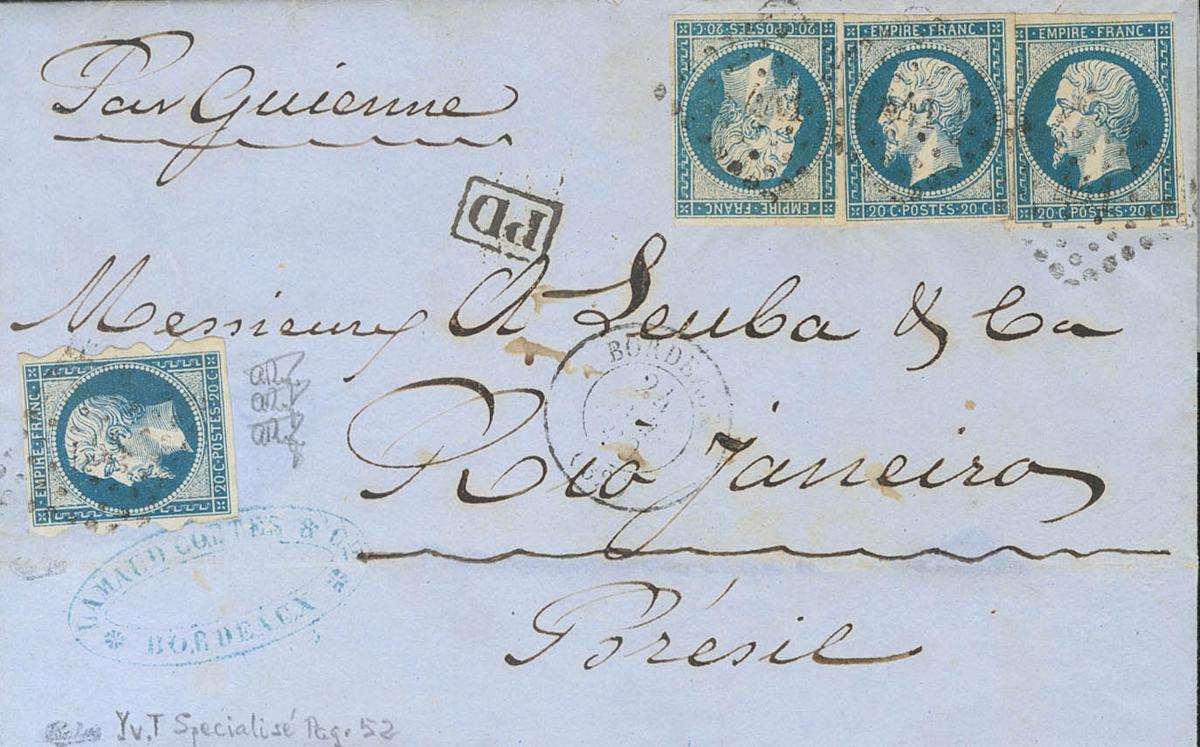 Par Guienne
20·C·POSTES·20·C
EMPIRE·FRANC
EMPIRE·FRANC
20·C·POSTES·20·C
EMPIRE·FRANC
20·C·POSTES·20·C
PD
Messieurs A Leuba & Ca
BORDEAUX
24
Rio Janeiro
EMPIRE·FRANC
20·C·POSTES·20·C
& C
BORDEAUX
Brésil
Yv.T Specialisé Pag. 52